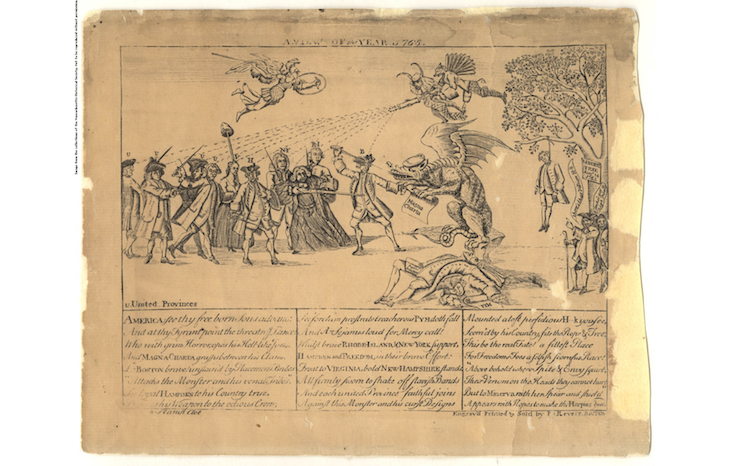 A VIEW OF the YEAR 1765.
Magna Charta
u. United Provinces
AMERICA see thy free born sons advance
And at thy Tyrant point the Lance
Who with grim Horror opes his Hell-like Jaws,
And MAGNA CHARTA grasps between his Claws
BOSTON brave! unstain'd by Placemen's Bribe
Attacks the Monster and his venal Tribe.
loyal HAMPDEN to his Country true,
his Weapon to the odious Crew;
prostrate treacherous PYM doth fall
And loud for Mercy call
Whilst brave RHODE ISLAND & NEW YORK support,
HAMPDEN and FREEDOM, in their brave Effort:
Front to VIRGINIA, bold NEW HAMPSHIRE stands,
All firmly to shake off slavish Bands
And each united Province faithful joins
Against this Monster and his curst Designs
Mounted aloft perfidious H-k you see
Scorn'd by his Country, fits the Rope & Tree,
This be the real Fate! a fittest Place
For Freedom's Foes a selfish scornful Race!
Above behold where Spite & Envy
Thier Venom on the Heads they cannot
But lo Minerva with her Spear and Shield
Appears with Hopes to make the Harpies
Engrav'd Printed & Sold by P. Revere, BOSTON